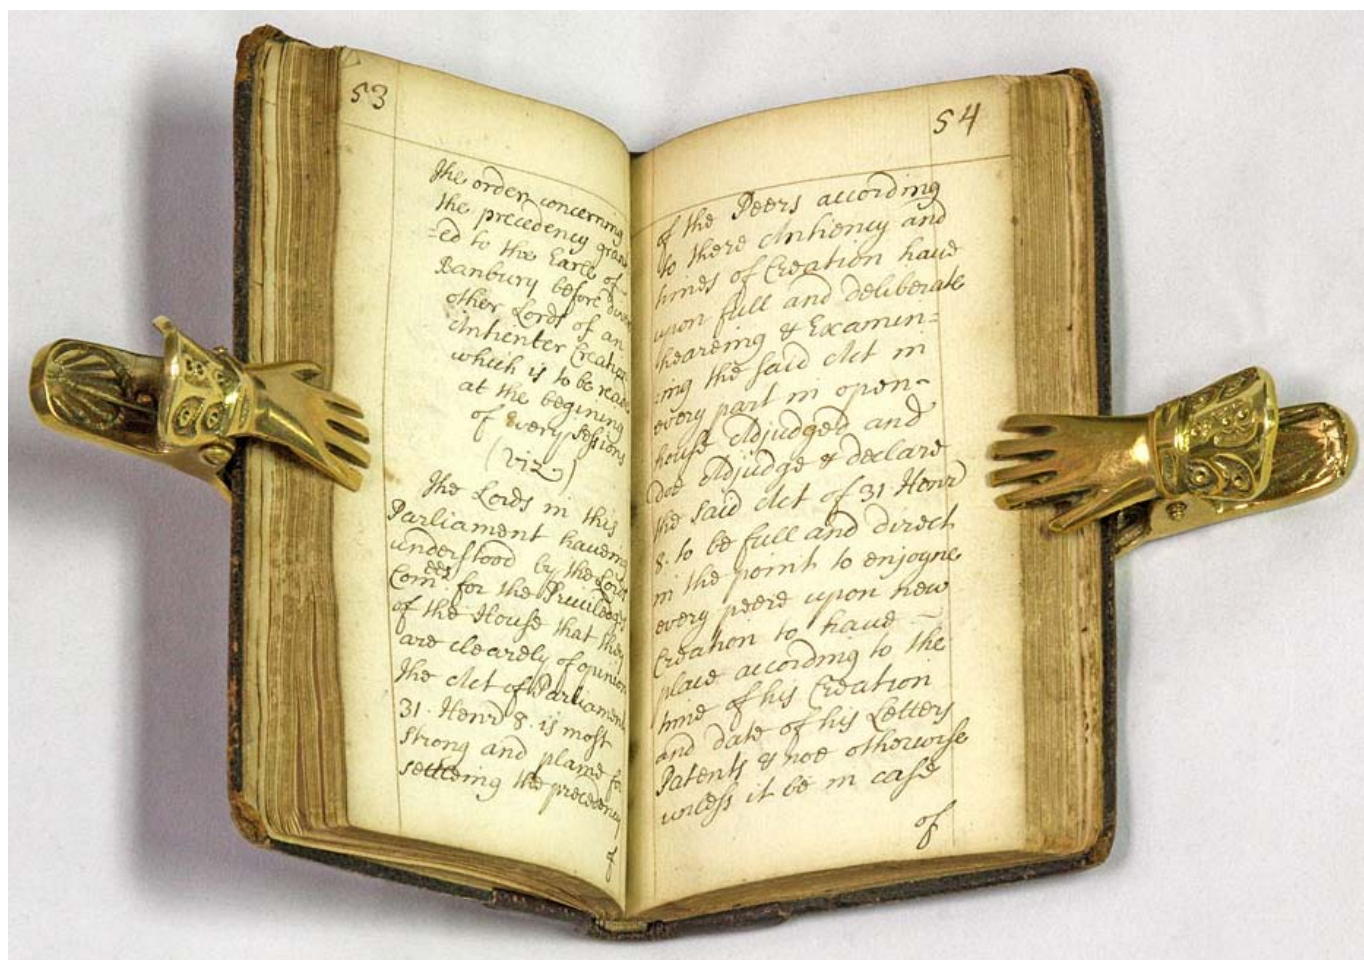 53
The order concerning
the precedency gran
=ed to the Earle of
Banbury before divers
other Lords of an
Antienter Creation
which is to be read
at the begining
of every sessions
(viz)
The Lords in this
Parliament haveing
understood by the Lords
Comees for the Priviledges
of the House that they
are clearely of opinion
The Act of Parliament
31. Henr 8. is most
strong and plaine for
setteing the precedency
of
54
of the Peers according
to there Antiency and
times of Creation have
upon full and deliberate
heareing & Examin=
=ing the said Act in
every part in open
house Adjudged and
doe Adjudge & declare
the said Act of 31. Henr
8. to be full and direct
in the point to enjoyne
every peere upon new
Creation to have
place according to the
time of his Creation
and date of his Letters
Patents & noe otherwise
unless it be in case
of